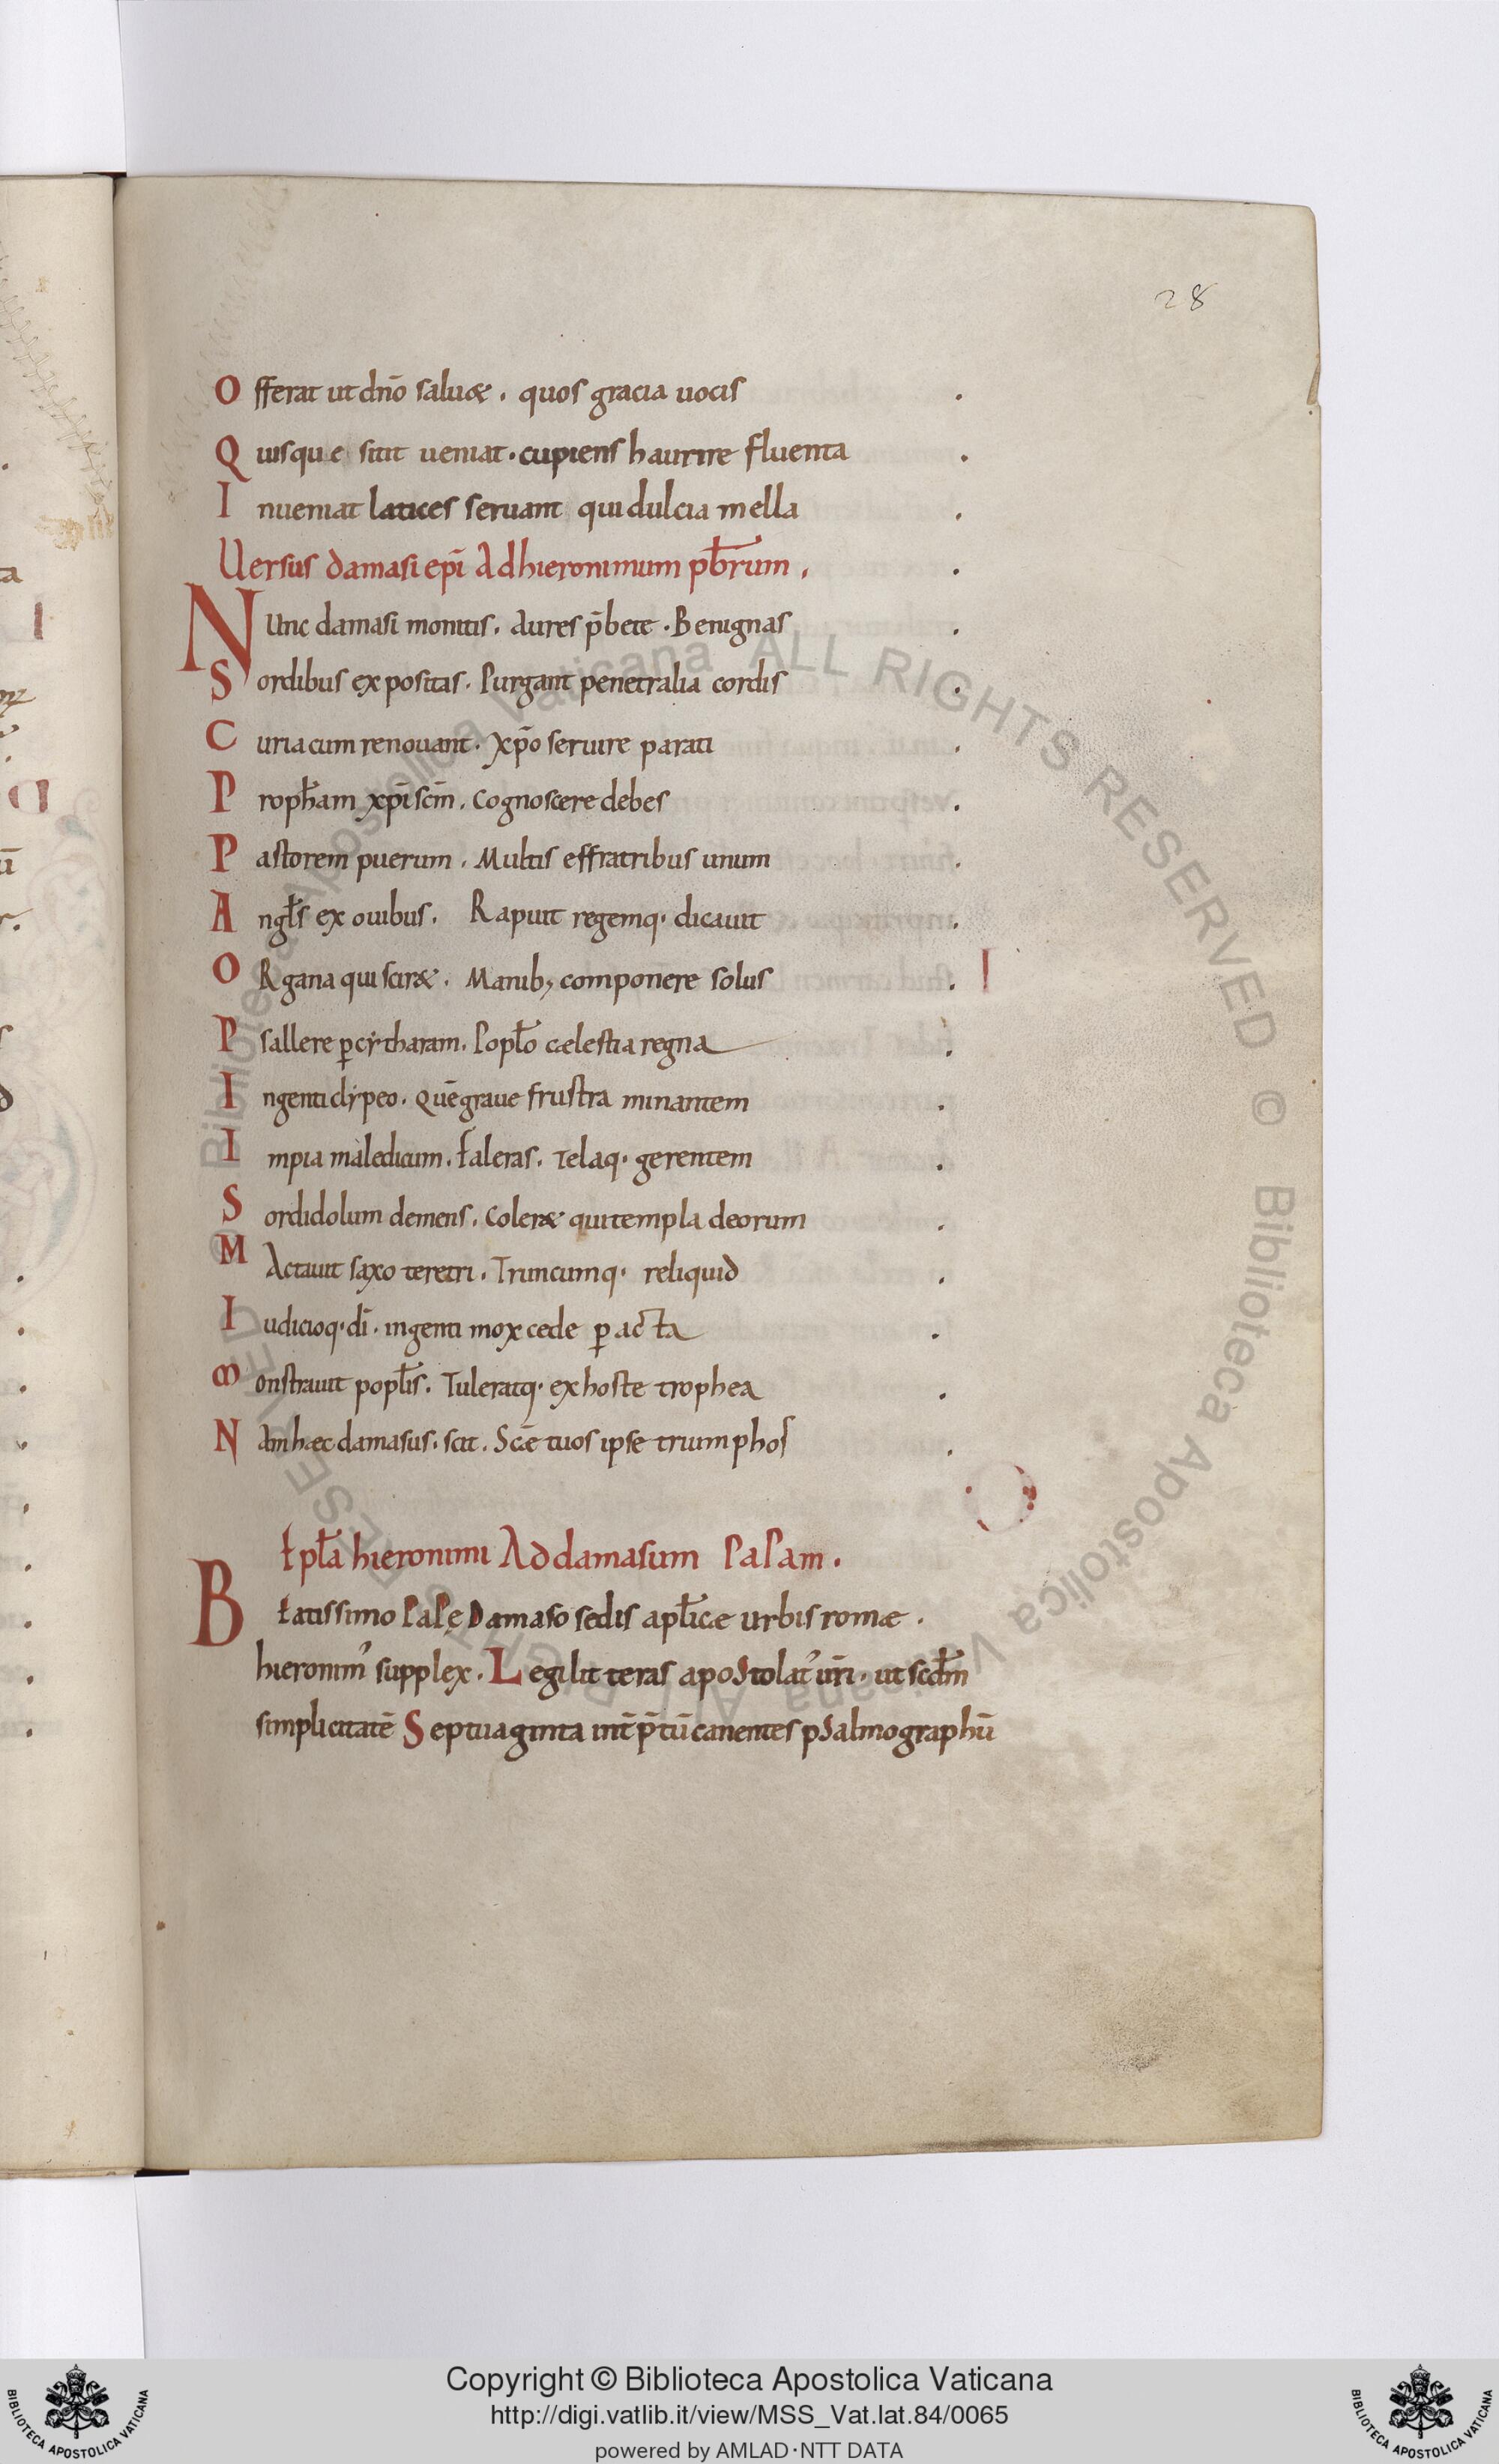 28
Offerat ut dn̄o saluæ. quos gracia uocis .
Quisque sitit ueniat. cupiens haurire fluenta .
Inueniat latices seruant qui dulcia mella .
Uersus damasi ep̄i Ad hieronimum pb̄rum, .
NUnc damasi monitis. Aures p̄bete. Benignas .
Sordibus expositas. Purgant penetralia cordis .
Curia cum renouant. Xp̄o seruire parati .
Proph̄am xp̄i sc̄m. Cognoscere debes .
Pastorem puerum. Multis effratribus unum .
Angl̄s ex ouibus. Rapuit regemq. dicauit .
ORgana qui sciræ. Manib; componere solus .
Psallere ꝑ cẏtharam. Popl̄o cælestia regna .
Ingenti clẏpeo. Quē graue frustra minantem .
Impia maledicum. faleras. Telaq. gerentem .
Sordidolum demens. Coleræ qui templa deorum .
MActauit saxo teretri. Truncumq. reliquid .
Iudicioq. dī. ingenti mox cede ꝑacta .
Monstrauit popl̄is. Tuleratq. ex hoste trophea .
NAm hæc damasus. scit. Sc̄e tuos ipse triumphos .
Epl̄a hieronimi Ad damasum PaPam.
BEatissimo PaPę Damaso sedis apl̄icæ urbis romæ.
hieronim᾿ supplex. Legi litteras apostolat᾿ ur̄i. ut scd̄m
simplicitatē Septuaginta int̄p̄tū canentes psalmographū
Copyright © Biblioteca Apostolica Vaticana
http://digi.vatlib.it/view/MSS_Vat.lat.84/0065
powered by AMLAD·NTT DATA